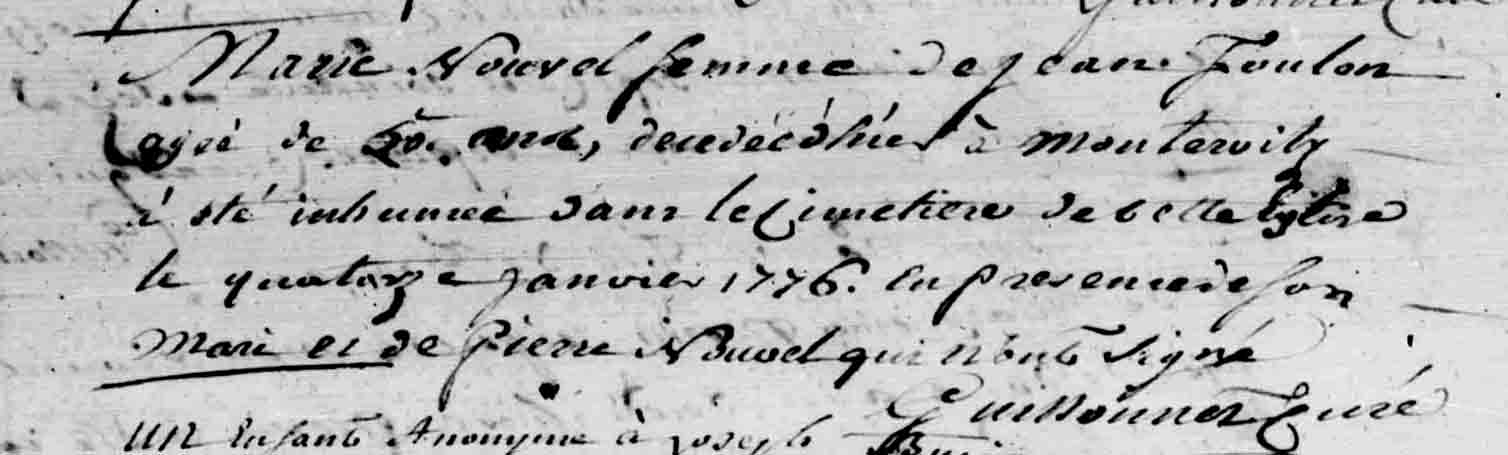 Marie Nouvel femme de jean Foulon
agée de 50. ans, decedée à Montervily
à été inhumée dans le Cimetiere de cette Eglise
le quatorze janvier 1776. En presence de son
Mari et de Pierre Nouvel qui n'ont signé
Guissonnet Curé
un Enfant Anonyme à joseph